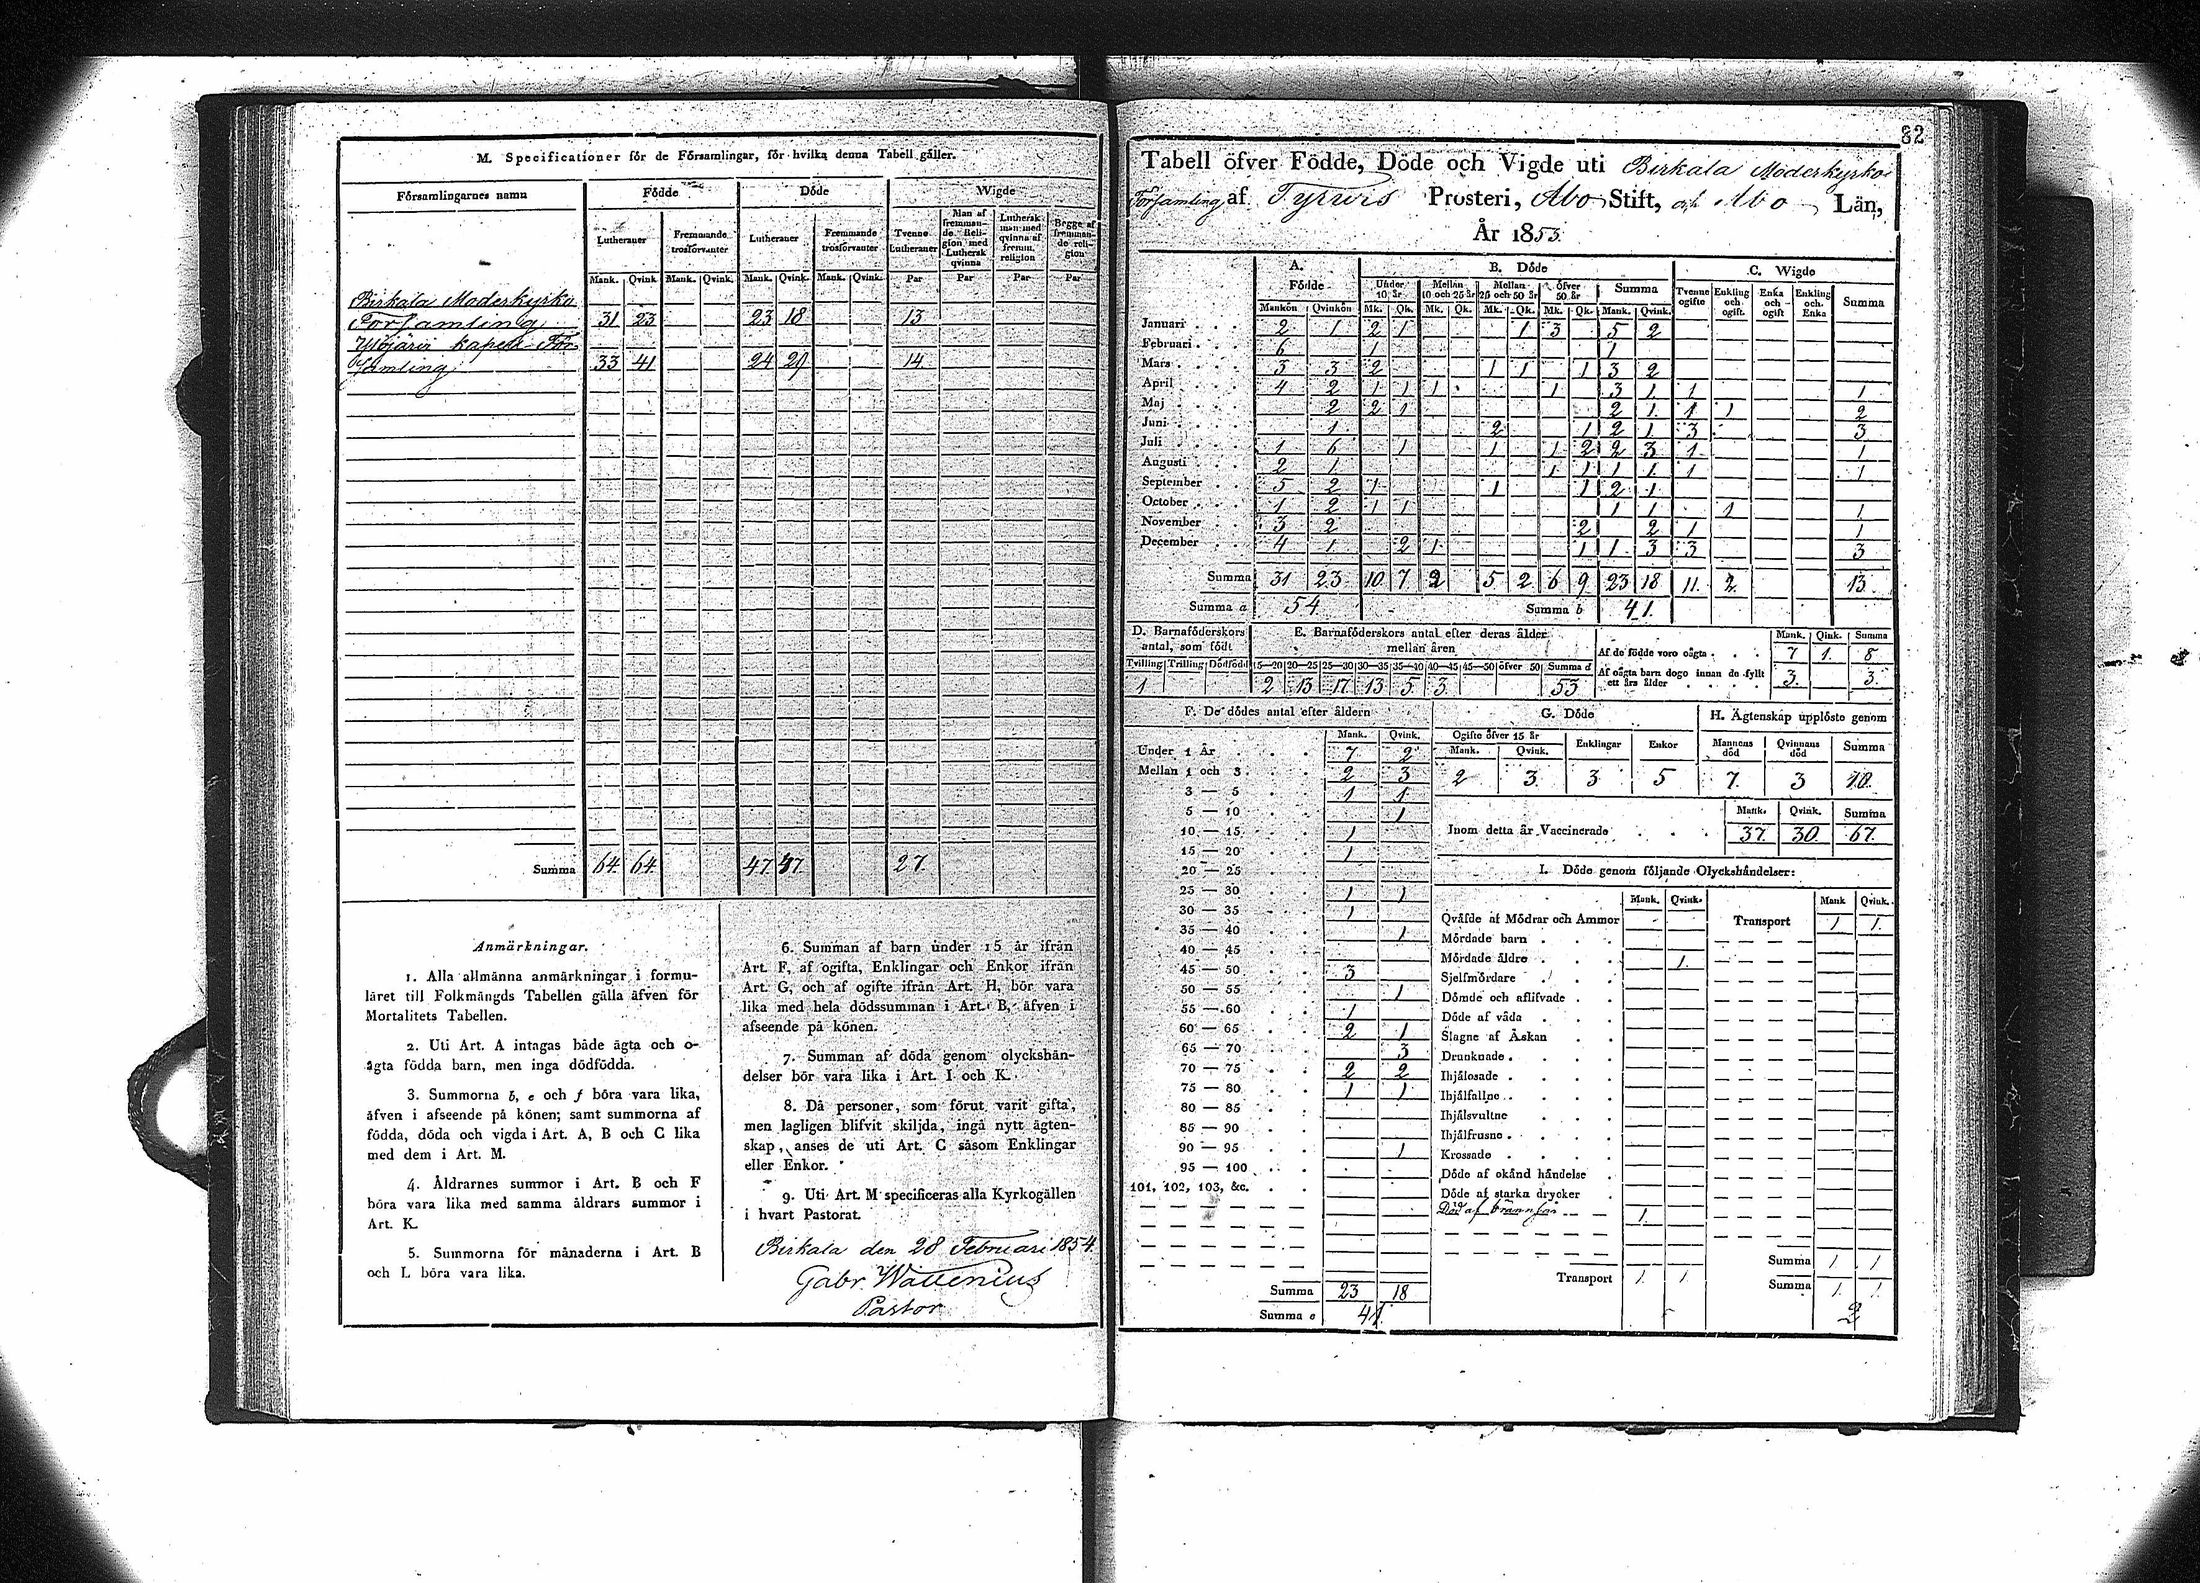 M. Specificationer för de Församlingar, för hvilka denna Tabell gäller.
Församlingarnes namn Födde Döde Wigde
Lutheraner Fremmande trosförvanter Lutheraner Fremmande trosförvanter Tvenne Lutheraner Man af fremmande Religion med Luthersk qvinna Luthersk man med qvinna af fremm. religion Begge af fremmande religion
Mank. Qvink. Mank. Qvink. Mank. Qvink. Mank. Qvink. Par Par Par Par
Birkala Moderkyrko
Församling 31 23 23 18 13
Ylöjärvi kapell För
samling 33 41 24 29 14
Summa 64 64 47 47 27.
Anmärkningar.
1. Alla allmänna anmärkningar i formu-
läret till Folkmängds Tabellen gälla äfven för
Mortalitets Tabellen.
2. Uti Art. A intagas både ägta och o-
ägta födda barn, men inga dödfödda.
3. Summorna b, e och f böra vara lika,
äfven i afseende på könen; samt summorna af
födda, döda och vigda i Art. A, B och C lika
med dem i Art. M.
4. Åldrarnes summor i Art. B och F
böra vara lika med samma åldrars summor i
Art. K.
5. Summorna för månaderna i Art. B
och L böra vara lika.
6. Summan af barn under 15 år ifrån
Art. F, af ogifta, Enklingar och Enkor ifrån
Art. G, och af ogifte ifrån Art. H, bör vara
lika med hela dödssumman i Art. B, äfven i
afseende på könen.
7. Summan af döda genom olyckshän-
delser bör vara lika i Art. I och K.
8. Då personer, som förut varit gifta,
men lagligen blifvit skiljda, ingå nytt ägten-
skap, anses de uti Art. C såsom Enklingar
eller Enkor.
9. Uti Art. M specificeras alla Kyrkogällen
i hvart Pastorat.
Birkala den 28 Februari 1854.
Gabr. Wallenius
Pastor
82
Tabell öfver Födde, Döde och Vigde uti Birkala Moderkyrko
Församling af Tyrwis Prosteri, Åbo Stift, och Åbo Län,
År 1853.
A. Födde B. Döde C. Wigde
Under 10 år Mellan 10 och 25 år Mellan 25 och 50 år öfver 50 år Summa Tvenne ogifte Enkling och ogift. Enka och ogift Enkling och Enka Summa
Mankön Qvinkön Mk. Qk. Mk. Qk. Mk. Qk. Mk. Qk. Mank. Qvink.
Januari 2 1 2 1 1 3 5 2
Februari 6 1 1
Mars 3 3 2 1 1 1 3 2
April 4 2 1 1 1 1 3 1 1 1
Maj 2 2 1 2 1 1 1 2
Juni 1 2 1 2 1 3 3
Juli 1 6 1 1 1 2 2 3 1 1
Augusti 2 1 1 1 1 1 1 1
September 5 2 1 1 1 2 1
October 1 2 1 1 1 1 1 1
November 3 2 2 2 1 1
December 4 1 2 1 1 1 3 3 3
Summa 31 23 10 7 2 5 2 6 9 23 18 11. 2. 13
Summa a 54 Summa b 41.
D. Barnaföderskors antal, som födt E. Barnaföderskors antal efter deras ålder mellan åren
Mank. Qink. Summa
Af de födde voro oägta 7 1. 8
Tvilling Trilling Dödfödd 15—20 20—25 25—30 30—35 35—40 40—45 45—50 öfver 50 Summa d
1 2 13 17 13 5 3 53
Af oägta barn dogo innan de fyllt ett års ålder 3. 3.
F. De dödes antal efter åldern
Mank. Qvink.
Under 1 År 7 2
Mellan 1 och 3 2 3
3 — 5 1 1
5 — 10 1
10 — 15 1
15 — 20 1
20 — 25
25 — 30 1 1
30 — 35 1
35 — 40 1
40 — 45
45 — 50 3
50 — 55 1
55 — 60 1
60 — 65 2 1
65 — 70 3
70 — 75 2 2
75 — 80 1 1
80 — 85
85 — 90
90 — 95 1
95 — 100
101, 102, 103, &c.
Summa 23 18
Summa e 41.
G. Döde
Ogifte öfver 15 år Enklingar Enkor
Mank. Qvink.
2 3. 3 5
H. Ägtenskap upplöste genom
Mannens död Qvinnans död Summa
7. 3 10.
Mank. Qvink. Summa
Inom detta år Vaccinerade 37. 30. 67.
I. Döde genom följande Olyckshändelser:
Mank. Qvink. Mank Qvink.
Qväfde af Mödrar och Ammor Transport 1 1.
Mördade barn
Mördade äldre 1.
Sjelfmördare
Dömde och aflifvade
Döde af våda
Slagne af Åskan
Drunknade
Ihjälosade
Ihjälfallne
Ihjälsvultne
Ihjälfrusne
Krossade
Döde af okänd händelse
Döde af starka drycker
Död af brännsår 1.
Summa 1 1
Transport 1. 1 Summa 1. 1.
2